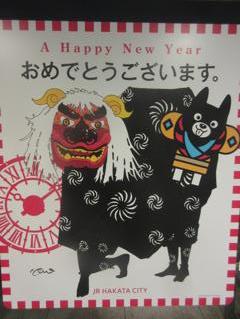 A Happy New Year
おめでとうございます。
JR HAKATA CITY